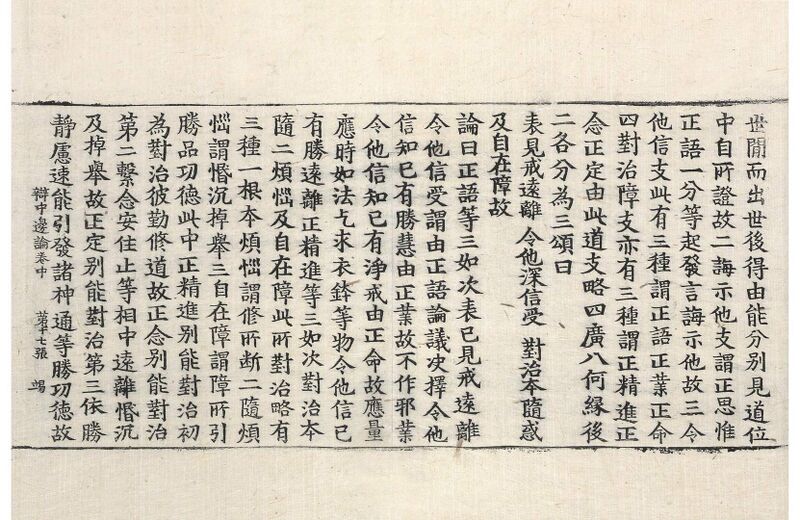 世閒而出世後得由能分别見道位
中自所證故二誨示他支謂正思惟
正語一分等起發言誨示他故三令
他信支此有三種謂正語正業正命
四對治障支亦有三種謂正精進正
念正定由此道支略四廣八何縁後
二各分為三頌曰
表見戒遠離 令他深信受 對治本隨惑
及自在障故
論曰正語等三如次表已見戒遠離
令他信受謂由正語論議決擇令他
信知已有勝慧由正業故不作邪業
令他信知已有淨戒由正命故應量
應時如法乞求衣鉢等物令他信已
有勝遠離正精進等三如次對治本
隨二煩惱及自在障此所對治略有
三種一根本煩惱謂修所断二隨煩
惱謂惛沉掉舉三自在障謂障所引
勝品功德此中正精進别能對治初
為對治彼勤修道故正念别能對治
第二繫念安住止等相中遠離惛沉
及掉舉故正定别能對治第三依勝
靜慮速能引發諸神通等勝功德故
辯中邊論卷中 第十七張 竭